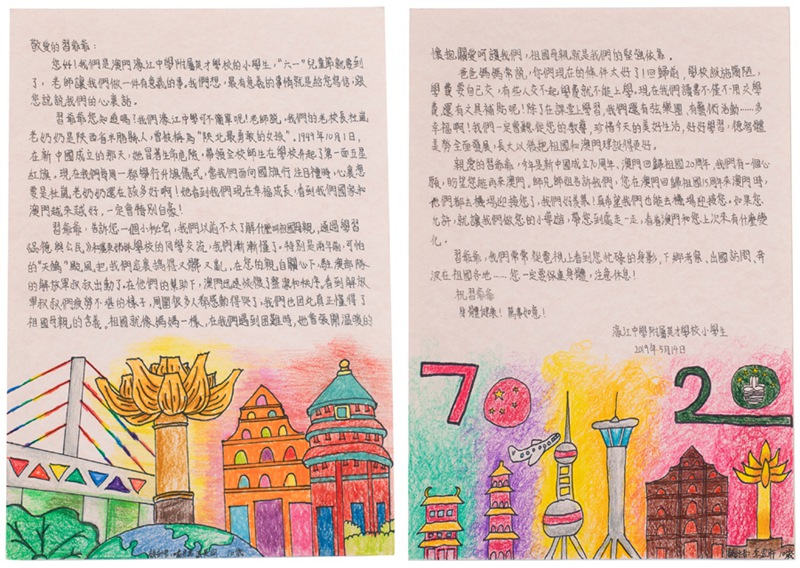 敬愛的習爺爺：
您好！我們是澳門濠江中學附屬英才學校的小學生，“六一”兒童節就要到
了，老師讓我們做一件有意義的事，我們想，最有意義的事情就是給您寫信，跟
您說說我們的心裏話。
習爺爺您知道嗎？我們濠江中學可不簡單呢！老師說，我們的老校長杜嵐
老奶奶是陝西省米脂縣人，曾被稱為“陝北最勇敢的女孩”。1949年10月1日，
在新中國成立的那天，她冒着生命危險，帶領全校師生在學校升起了第一面五星
紅旗。現在我們每周一都舉行升旗儀式，當我們面向國旗行注目禮時，心裏想
要是杜嵐老奶奶還在該多好啊！她看到我們現在幸福成長，看到我們國家和
澳門越來越好，一定會特別自豪！
習爺爺，告訴您一個小秘密，我們以前不太了解什麼叫祖國母親，通過學習
的“天鴿”颱風，把我們這裏搞得又髒又亂，在您的親自關心下，駐澳部隊
的解放軍叔叔出動了。在他們的幫助下，澳門迅速恢復了整潔和秩序。看到解放
軍叔叔們疲勞不堪的樣子，周圍很多人都感動得哭了，我們也因此真正懂得了
祖國母親的含義。祖國就像媽媽一樣，在我們遇到困難時，她會張開溫暖的
懷抱，關愛呵護我們，祖國母親就是我們的堅強依靠。
爸爸媽媽常說，你們現在的條件太好了！回歸前，學校設施簡陋，
學費要自己交，有些人交不起學費就不能上學。現在我們讀書不僅不用交學
費，還有文具補貼呢！除了在課堂上學習，我們還有弦樂團、有藝術活動……多
幸福啊！我們一定會聽從您的教導，珍惜今天的美好生活，好好學習，德智體
美勞全面發展，長大以後把祖國和澳門建設得更好。
親愛的習爺爺，今年是新中國成立70周年、澳門回歸祖國20周年，我們有一個心
願，盼望您能再來澳門。師兄師姐告訴我們，您在澳門回歸祖國15周年來澳門時，
他們都去機場迎接您了，我們好羨慕！真希望我們也能去機場迎接您。如果您
允許，就讓我們做您的小導遊，帶您到處走一走，看看澳門和您上次來有什麼變
化。
習爺爺，我們常常從電視上看到您忙碌的身影，下鄉考察、出國訪問、奔
波在祖國各地……您一定要保重身體，注意休息！
祝習爺爺
身體健康！萬事如意！
濠江中學附屬英才學校小學生
2019年5月14日
70
20